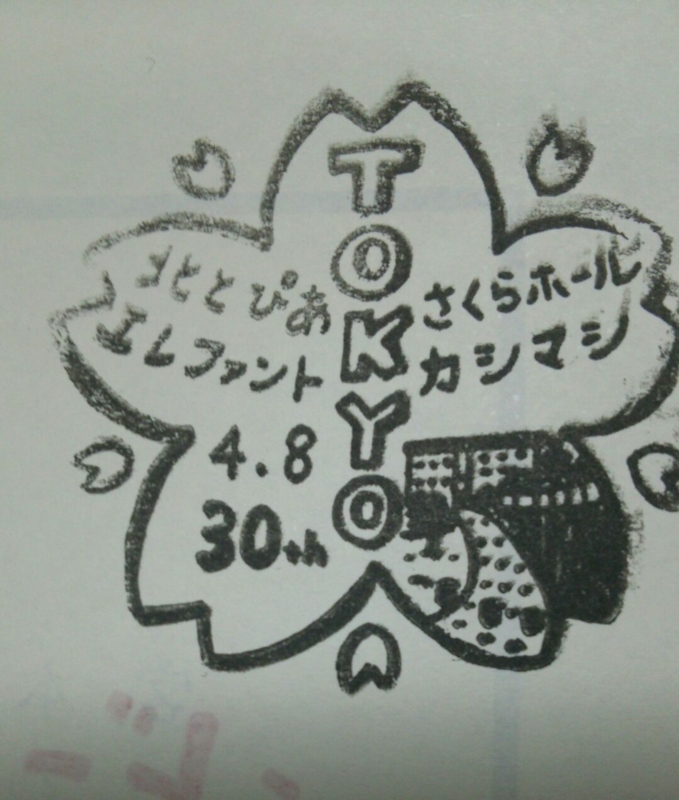 TOKYO
北とぴあ
さくらホール
エレファント
カシマシ
4.8
30th